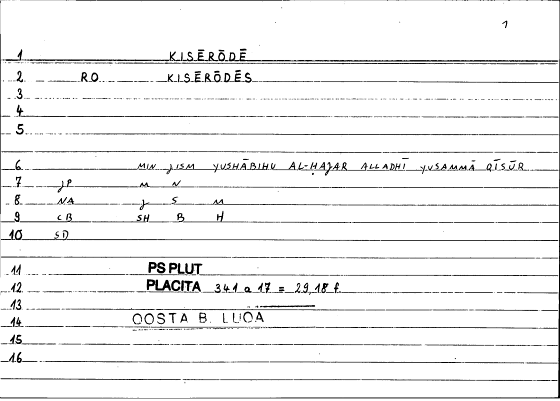 1
1 KISĒRŌDĒ
2 RO KISĒRŌDĒS
3
4
5
6 MIN JISM YUSHĀBIHU AL-ḤAJAR ALLADHĪ YUSAMMĀ QĪSŪR
7 JP M N
8 NA J S M
9 CB SH B H
10 SD
11 PS PLUT
12 PLACITA 341 a 17 = 29,18 f.
13
14 QOSTA B. LUQA
15
16